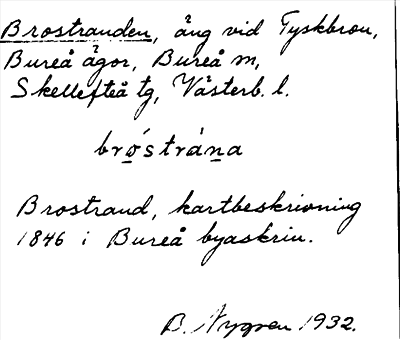 Brostranden, äng vid Tyskbron,
Bureå ägor, Bureå m,
Skellefteå tg, Västerb. l.
brǫ́strána
Brostrand, kartbeskrivning
1846 i Bureå byaskrin.
B. Nygren 1932.